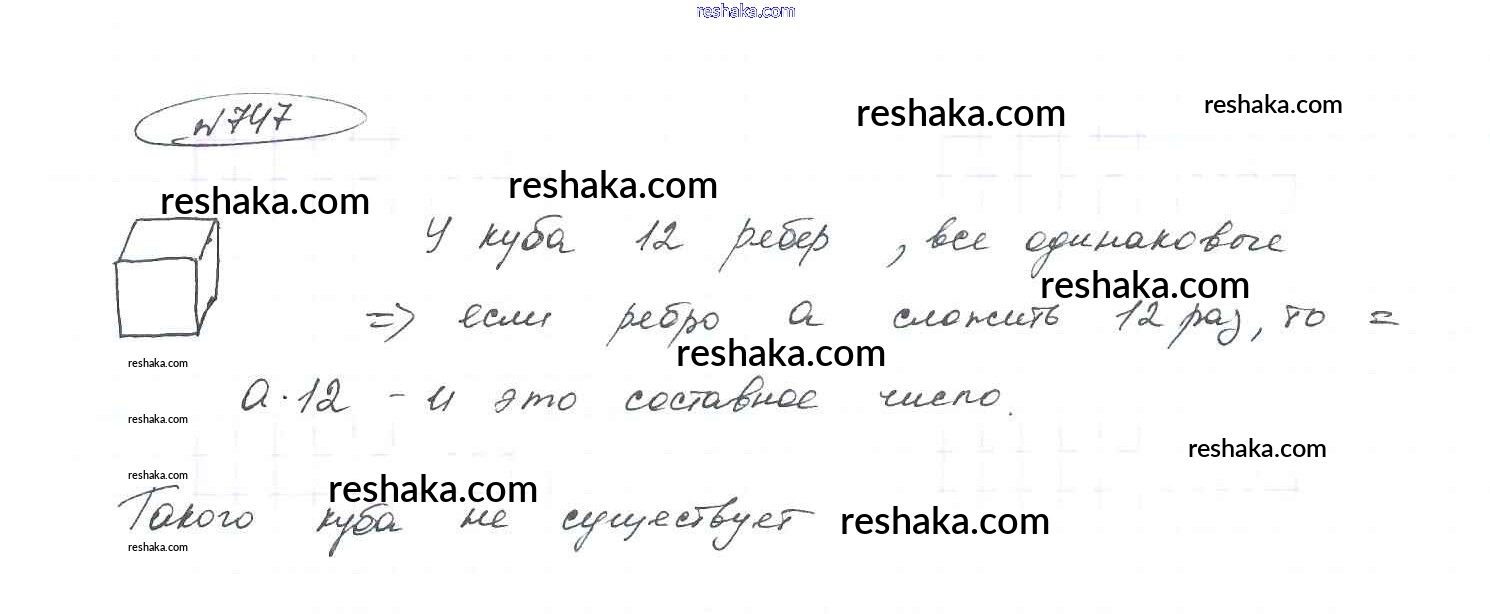 reshaka.com
№747
reshaka.com reshaka.com
reshaka.com reshaka.com
У куба 12 ребер, все одинаковые
reshaka.com
=> если ребро a сложить 12 раз, то =
reshaka.com
reshaka.com
a·12 - и это составное число.
reshaka.com
reshaka.com
reshaka.com
reshaka.com
Такого куба не существует reshaka.com
reshaka.com